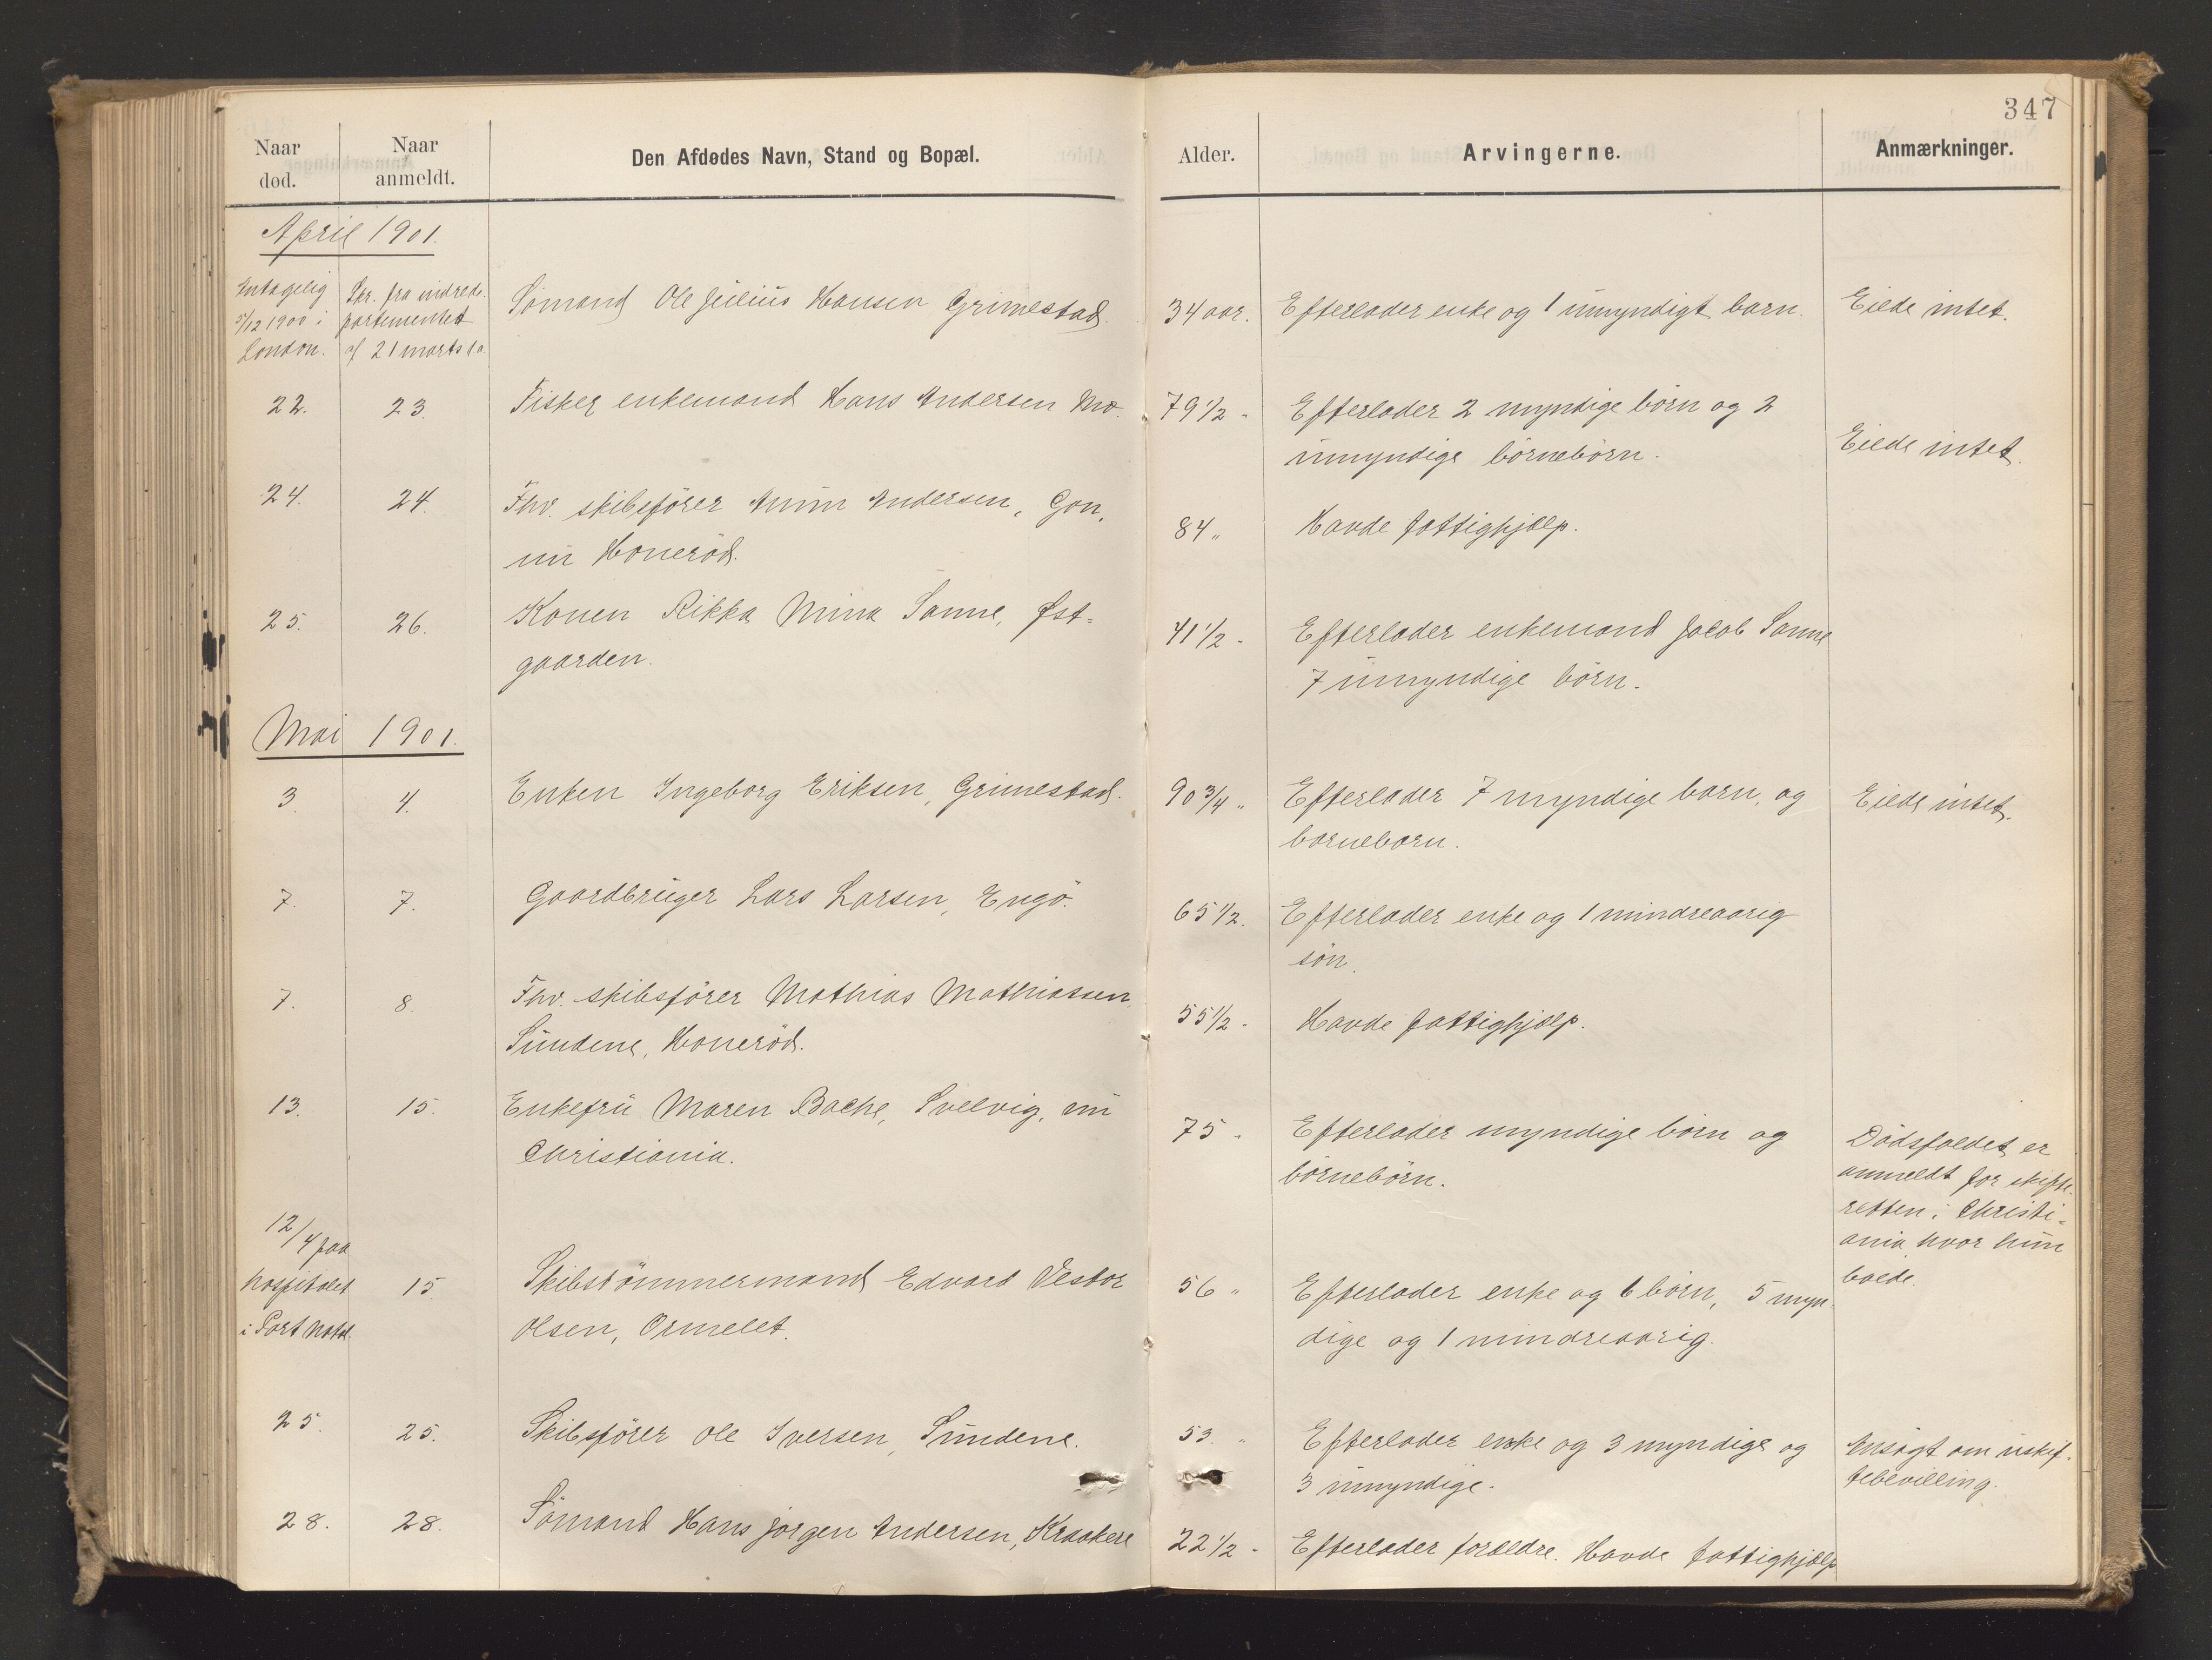 347
Naar død. Naar anmeldt. Den Afdødes Navn, Stand og Bopæl. Alder. Arvingerne. Anmærkninger.
April 1901.
Antagelig Skr. fra indrede- Sömand Ole Julius Hansen Grimestad. 34 aar. Efterlader enke og 1 umyndigt barn. Eiede intet.
5/12 1900 i partementet
London. af 21 marts
22. 23. Fisker enkemand Hans Andersen Mo. 79 1/2 " Efterlader 2 myndige börn og 2
umyndige börnebörn. Eiede intet.
24. 24. Fhv. skibsförer Andersen, Gon,
nu Honeröd. 84 " Havde fattighjælp.
25. 26. Konen Rikka Mina Sanne, Øst-
gaarden. 41 1/2 " Efterlader enkemand Jacob Sanne
7 umyndige börn.
Mai 1901.
3. 4. Enken Ingeborg Eriksen, Grimestad. 90 3/4 " Efterlader 7 myndige barn, og Eiede intet.
barnebarn.
7. 7. Gaardbruger Lars Larsen, Engö. 65 1/2. Efterlader enke og 1 mindreaarig
sön.
7. 8. Fhv. skibsförer Mathias Mathiassen,
Sundene, Honeröd. 55 1/2 " Havde fattighjælp.
13. 15. Enkefru Maren Bache, Svelvig, nu
Christiania. 75 " Efterlader myndige börn og
börnebörn.
Dödsfaldet er
anmeldt for skifte-
retten i Christi-
ania, hvor hun
boede.
12/4 paa
hospitalet 15. Skibstömmermand Edvard Vestor 56 " Efterlader enke og 6 börn, 5 myn-
i Port Natal. Olsen, Ormelet. dige og 1 mindreaarig.
25. 25. Skibsförer Ole Iversen, Sundene. 53. " Efterlader enke og 3 myndige og Ansögt om uskif-
3 umyndige. tebevilling.
28. 28. Sömand Hans Jörgen Andersen, Kraakere 22 1/2 " Efterlader forældre. Havde fattighjælp